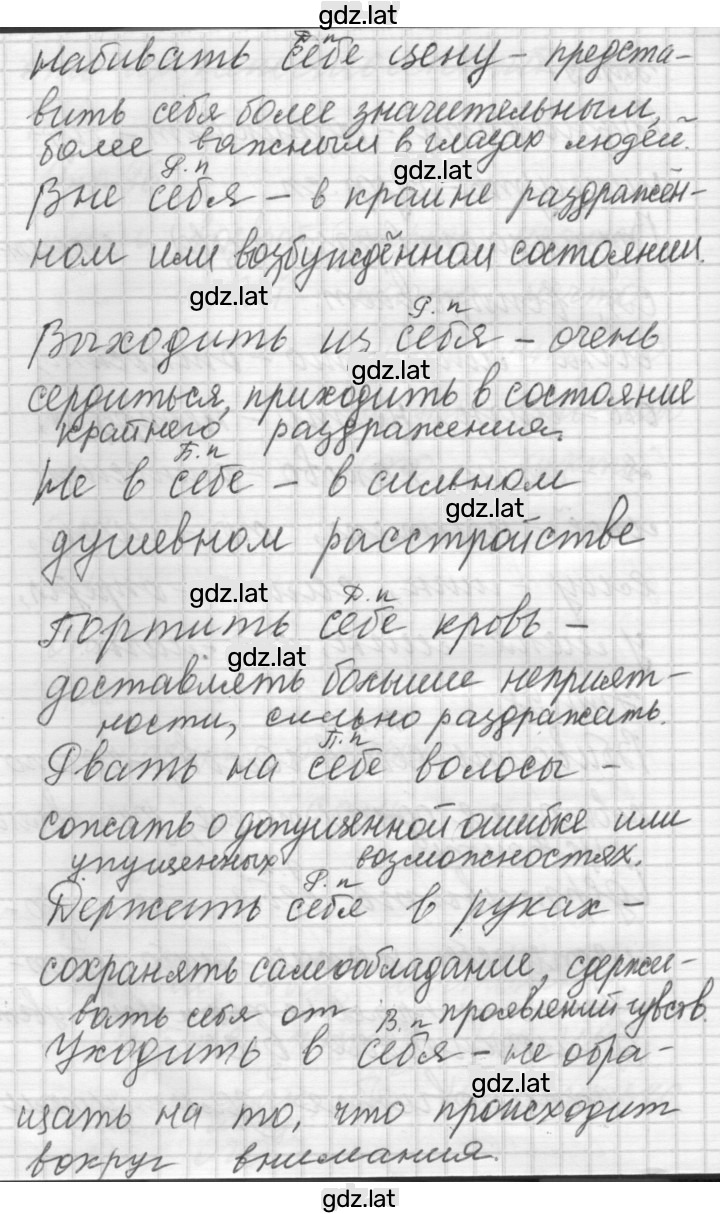 gdz.lat
Д.п
набивать себе цену – предста-
вить себя более значительным,
более важным в глазах людей.
gdz.lat
Р.п
Вне себя – в крайне раздражён-
ном или возбуждённом состоянии.
gdz.lat
Р.п
Выходить из себя – очень
gdz.lat
сердиться, приходить в состояние
крайнего раздражения.
П.п
Не в себе – в сильном
gdz.lat
душевном расстройстве
gdz.lat
Д.п
Портить себе кровь –
gdz.lat
доставлять большие неприят-
ности, сильно раздражать.
П.п
Рвать на себе волосы –
сожать о допущенной ошибке или
упущенных возможностях.
Р.п
Держать себя в руках –
сохранять самообладание, сдержи-
вать себя от проявлений чувств.
В.п
Уходить в себя – не обра-
gdz.lat
щать на то, что происходит
вокруг внимания.
gdz.lat